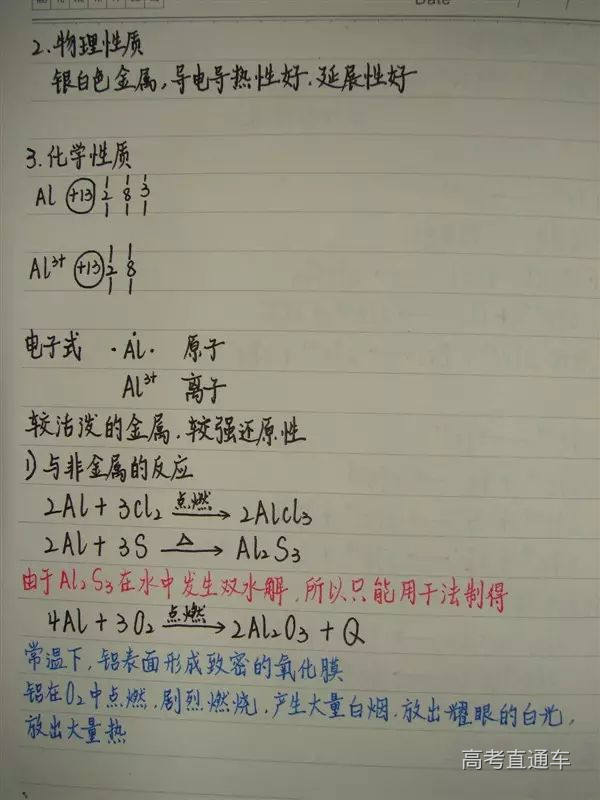 Date
2.物理性质
银白色金属,导电导热性好.延展性好
3.化学性质
Al +13 2 8 3
Al³⁺ +13 2 8
电子式 ·Al· 原子
Al³⁺ 离子
较活泼的金属.较强还原性
1)与非金属的反应
2Al + 3Cl₂ 点燃→ 2AlCl₃
2Al + 3S △→ Al₂S₃
由于Al₂S₃在水中发生双水解.所以只能用干法制得
4Al + 3O₂ 点燃→ 2Al₂O₃ + Q
常温下,铝表面形成致密的氧化膜
铝在O₂中点燃,剧烈燃烧,产生大量白烟.放出耀眼的白光,
放出大量热
高考直通车